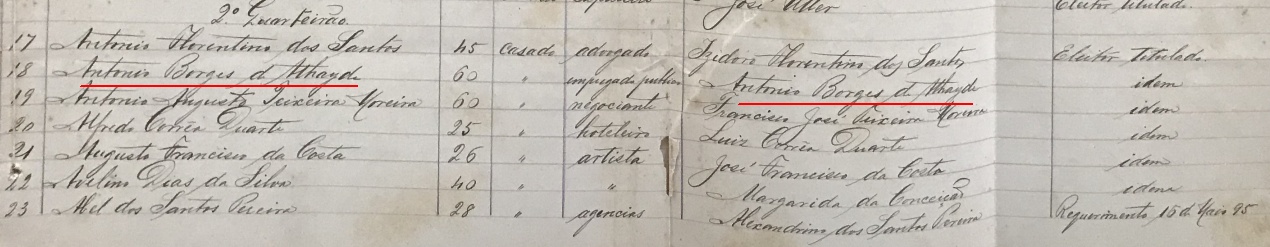 José Utler Eleitor titulado.
2º Quarteirão.
17 Antonio Florentino dos Santos 45 casado advogado Izidoro Florentino dos Santos Eleitor titulado.
18 Antonio Borges d'Athayde 60 " empregado publico Antonio Borges d'Athayde idem
19 Antonio Augusto Teixeira Moreira 60 " negociante Francisco José Teixeira Moreira idem
20 Alfredo Corrêa Duarte 25 " hoteleiro Luiz Corrêa Duarte idem
21 Augusto Francisco da Costa 26 " artista José Francisco da Costa idem
22 Avelino Dias da Silva 40 " " Margarida da Conceição idem
23 Abel dos Santos Pereira 28 " agencias Alexandrino dos Santos Pereira Requerimento 15 d Maio 95